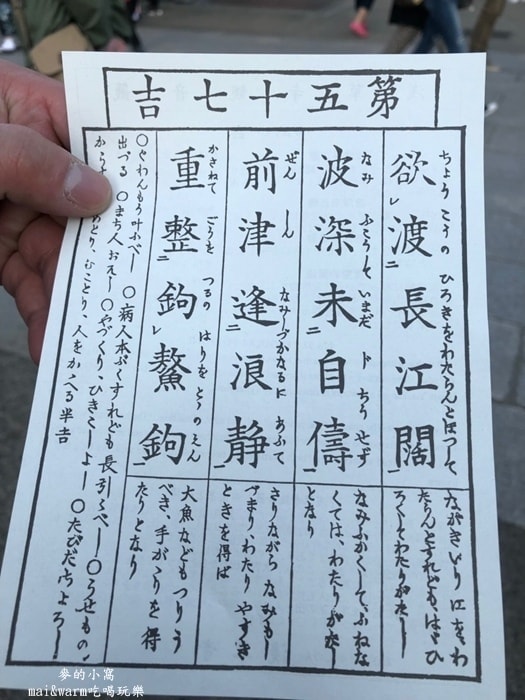 第五十七吉
欲レ渡二長江闊一
ちょうこうの ひろきをわたらんとほつして
ながきいり江をわ
たらんとすれども、はゞひ
ろくしてわたりがたし
波深未二自儔一
なみ ふこうして いまだ ドちうせず
なみふかくして、ふねな
くては、わたりがたし
となり
前津逢二浪静一
ぜん しん なみしづかなるに あふて
さりながら なみもし
づまり、わたり やすき
ときを得ば
重整二鉤レ鰲鉤一
かさねて ごうを つるの はりを とゝのえん
大魚なども つりう
べき、手がゝりを得
たりとなり
〇ぐわんもう叶ふべし 〇病人本ぷくすれども長引くべし 〇うせもの、
出づる 〇まち人おそし 〇やづくり、ひきこしよし 〇たびだちよろし
から めとり、むことり、人をかゝへる半吉
麥的小窩
mai&warm吃喝玩樂